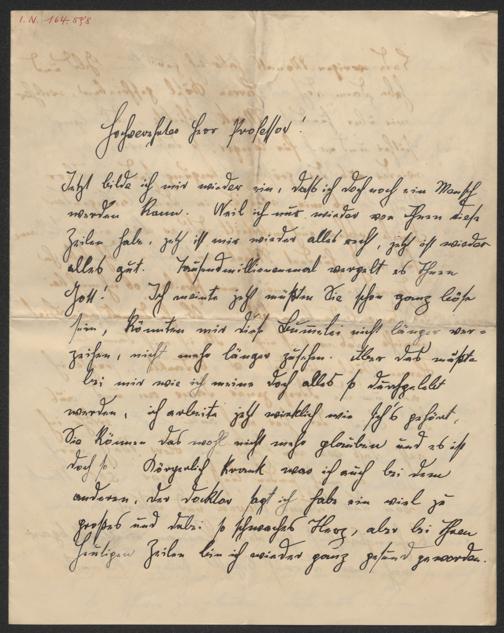 I. N. 164.598
Hochverehrter Herr Professor!
Jetzt bilde ich mir wieder ein, daß ich doch noch ein Mensch
werden kann. Weil ich nur wieder von Ihnen diese
Zeilen habe, jetzt ist mir wieder alles recht, jetzt ist wieder
alles gut. Tausendmillionenmal vergelt es Ihnen
Gott! Ich meinte jetzt müßten Sie schon ganz böse
sein, könnten mir diese Bumelei nicht länger ver-
zeihen, nicht mehr länger zusehen. Aber das mußte
bei mir wie ich meine doch alles so durchgelebt
werden, ich arbeite jetzt wirklich wie sich's gehört,
Sie können das wohl nicht mehr glauben und es ist
doch so. Körperlich krank war ich auch bei dem
anderen, der Docktor sagt ich habe ein viel zu
großes und dabei so schwaches Herz, aber bei Ihren
heutigen Zeilen bin ich wieder ganz gesund geworden.